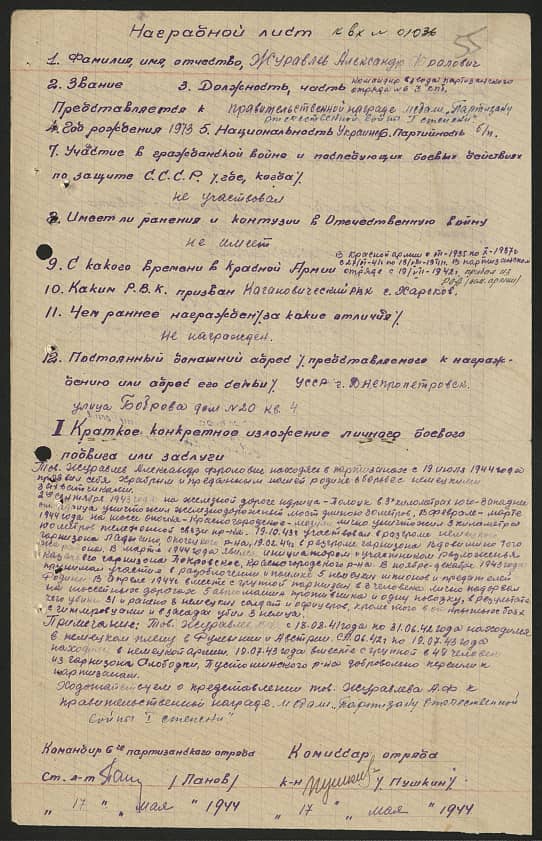 Наградной лист к вх № 01036
55
1. Фамилия, имя, отчество, Журавлев Александр Фролович
2. Звание 3. Должность, часть командир взвода партизанского
отряда №6 3
Представляется к правительственной награде медаль "Партизану
отечественной войны I степени"
4. Год рождения 1913 5. Национальность Украине 6. Партийность б/п.
7. Участие в гражданской войне и последующих боевых действиях
по защите С.С.С.Р. /где, когда/
не участвовал
8. Имеет ли ранения и контузии в Отечественную войну
не имеет
9. С какого времени в Красной Армии
В Красной армии с по X-1937г
В партизанском
отряде с
10. Каким Р.В.К. призван Кагановический РВК г. Харьков.
11. Чем раннее награжден /за какие отличия/
Не награжден.
12. Постоянный домашний адрес / представляемого к награж-
дению или адрес его семьи/ УССР г. Днепропетровск
улица Боброва дом №20 кв. 4
I Краткое конкретное изложение личного боевого
подвига или заслуги
Тов. Журавлев Александр Фролович находясь в партизанах с 19 июля 1944 года
проявил себя храбрым и преданным нашей родине в борьбе с немецкими
захватчиками.
1943 года на железной дороге Идрица-Полоцк в 3х километрах юго-западнее
Идрица уничтожил железнодорожный мост длиною 30 метров, В феврале-марте
1944 года на шоссе Опочка-Красногородское лично уничтожил 3 километра
100 метров телефонной связи пр-ка. 19.10.43г участвовал в разгроме немецкого
гарнизона р-на, 19.02.44г в разгроме гарнизона того
же района. В марте 1944 года инициатором и участником разложенья
гарнизона Покровское, Красногородского р-на. В ноябре-декабре 1943 года
принимал участие в разоблачении и поимке 5 немецких шпионов и предателей
Родины. В апреле 1944г вместе с группой партизан в 8 человек лично подорвал
на шоссейных дорогах 5 автомашин противника и одну повозку, в результате
чего убито 31 и ранено 8 немецких солдат и офицеров, кроме того в
с гитлеровцами и в засадах убил 3 немца.
Примечание: Тов. Журавлев с 18.08.41 года по 31.06.42 года находился
в немецком плену в Румынии и Австрии. С 1.06.42г по 19.07.43 года
находился в немецкой армии. 19.07.43 года вместе с группой в 48 человек
из гарнизона Слободки, Пустошкинского р-на добровольно перешли к
партизанам.
Ходатайствуем о представлении тов. Журавлева А.Ф к
правительственной награде медаль "Партизану отечественной
войны I степени"
Командир 6го партизанского отряда Комиссар отряда
ст. л-т / Панов/ к-н / Пушкин/
" 17 " мая " 1944 " 17 " мая " 1944